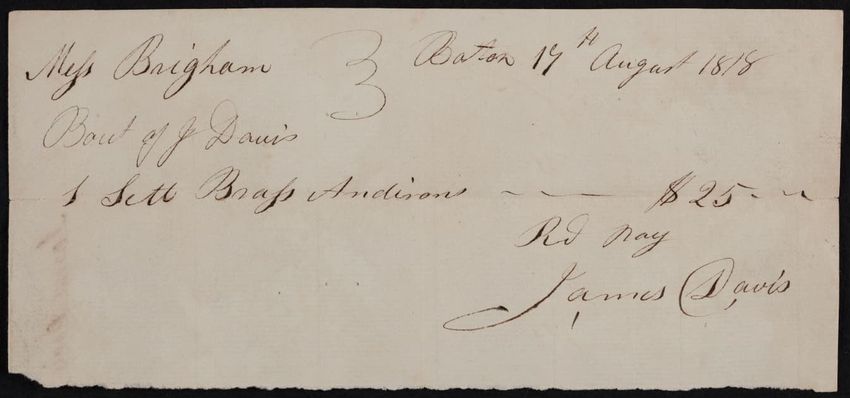 Mess Brigham Boston 17th August 1818
Bout of J Davis
1 Sett Brass Andirons $25
Rd Pay
James Davis